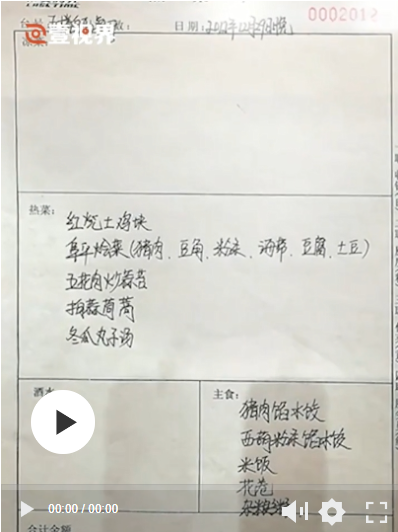 0002012
日期:2012年12月29日晚
壹视界
热菜:
红烧土鸡块
阜平烩菜(猪肉、豆角、粉条、海带、豆腐、土豆)
五花肉炒蒜苔
拍蒜茼蒿
冬瓜丸子汤
酒水
主食:
猪肉馅水饺
西葫粉条馅水饺
米饭
花卷
00:00 / 00:00
合计金额